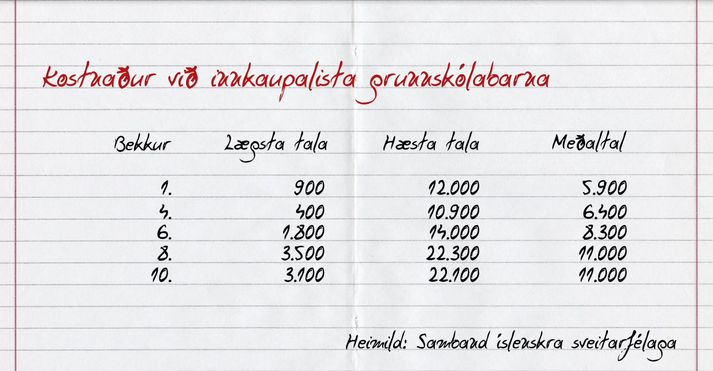 Kostnaður við innkaupalista grunnskólabarna
Bekkur Lægsta tala Hæsta tala Meðaltal
1. 900 12.000 5.900
4. 400 10.900 6.400
6. 1.800 14.000 8.300
8. 3.500 22.300 11.000
10. 3.100 22.100 11.000
Heimild: Samband íslenskra sveitarfélaga